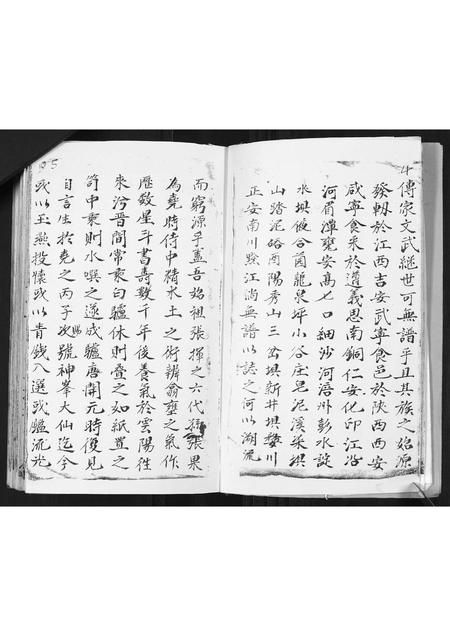 4
傳家文武繼世可無譜乎且其族之始源
發軔於江西吉安武寧食邑於陝西西安
咸寧食采於遵義思南銅仁安化印江沿
河省潭甕安高七口細沙河涪州彭水錠
水垻儌合茵龍泉坪小谷庄皂泥溪采垻
山踏泥硌酉陽秀山三岔垻新井垻婺川
正安南川黔江淌無譜以誌之何以溯流
5
而窮源乎蓋吾始祖張揮之六代張果
為堯時侍中精水土之術辨翕壅之氣作
歷數星斗書壽數千年後養氣於雲陽徃
來汾晉間常乘白驢休則疊之如紙置之
笥中乘則水噀之遂成驢唐開元時復見
自言生於堯之丙子賜號神峯大仙迄今
或以玉燕投懷或以青錢入選或臚流光